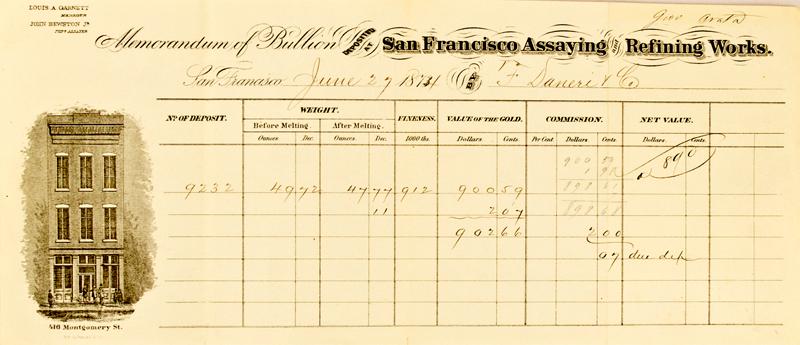 LOUIS A. GARNETT
MANAGER
JOHN HEWSTON Jr
Memorandum of Bullion DEPOSITED AT San Francisco Assaying AND Refining Works.
San Francisco June 27 1874 BY F. Daneri & Co
No. OF DEPOSIT. WEIGHT. FINENESS. VALUE OF THE GOLD. COMMISSION. NET VALUE.
Before Melting. After Melting.
Ounces Dec. Ounces. Dec. 1000 ths. Dollars Cents. Per Cent Dollars Cents. Dollars. Cents.
900 59
1 98
890
9232 49.72 47.77 912 900 59 898 61
11 2 07 898 68
902 66 2 00
07 due dep
416 Montgomery St.